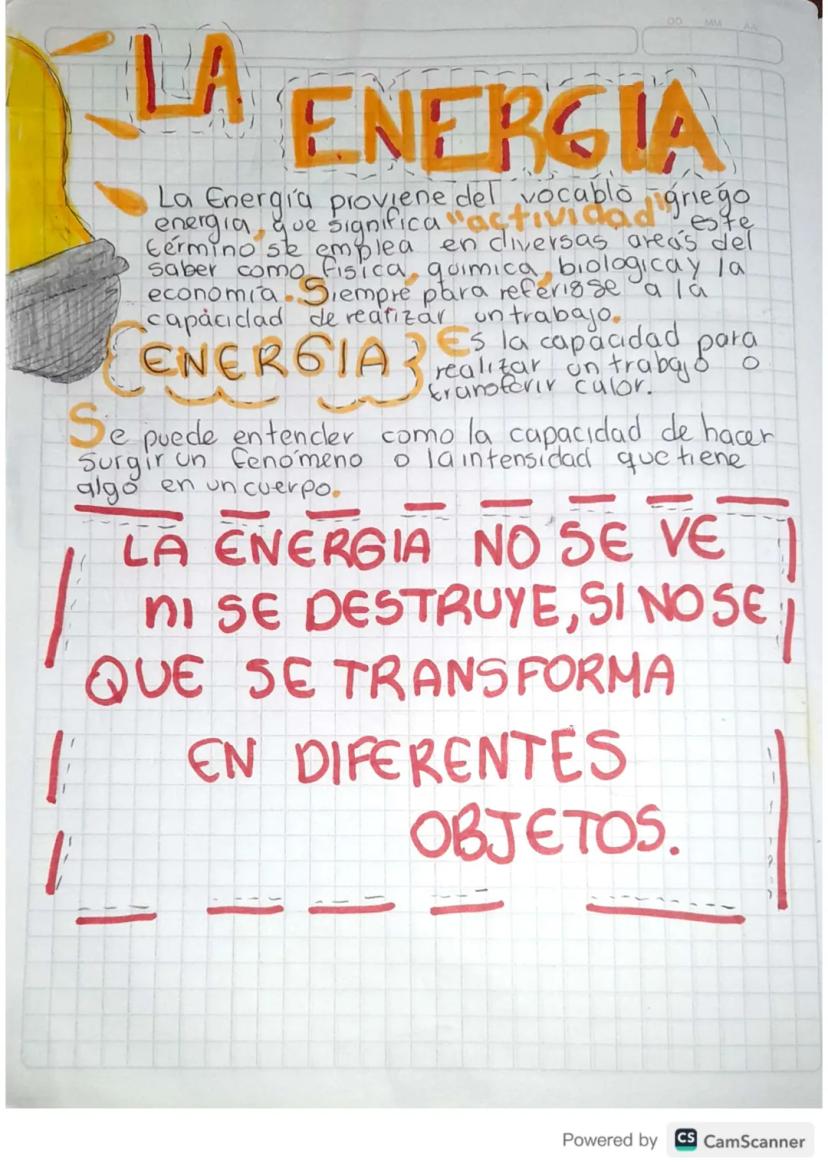 OO MM AA
LA
ENERGIA
La Energía proviene del vocablo griego
energia, que significa "actividad" este
término se emplea en diversas areas del
saber como fisica, quimica, biologica y la
economía. Siempre para referirse a la
capacidad de realizar un trabajo.
ENERGIA
Es la capacidad para
realizar un trabajo o
transferir calor.
Se puede entender como la capacidad de hacer
surgir un fenómeno o la intensidad que tiene
algo en un cuerpo.
LA ENERGIA NO SE VE
ni SE DESTRUYE, SI NO SE
QUE SE TRANSFORMA
EN DIFERENTES
OBJETOS.
Powered by CS CamScanner